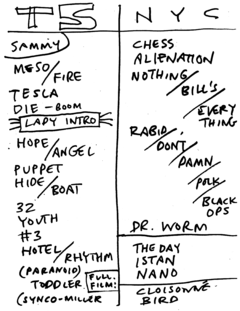 TS
SAMMY
MESO/FIRE
TESLA
DIE - BOOM
LADY INTRO
HOPE/ANGEL
PUPPET
HIDE/BOAT
32
YOUTH
#3
HOTEL/RHYTHM
(PARANOID)
TODDLER
FULL FILM:
(SYNCO-MILLER
NYC
CHESS
ALIENATION
NOTHING/BILL'S/EVERYTHING
RABID/DON'T/DAMN/PORK/BLACK OPS
DR. WORM
THE DAY
ISTAN
NANO
CLOISONNÉ
BIRD